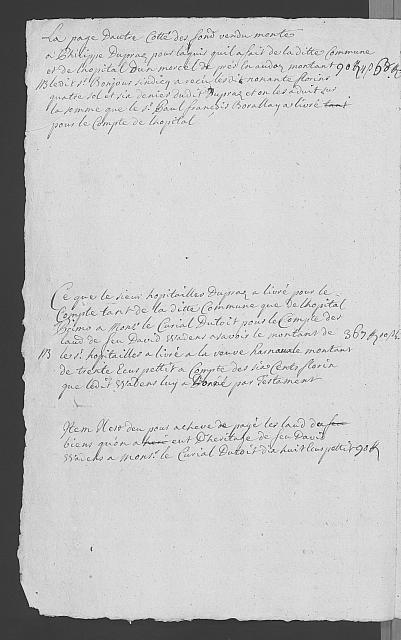 La page dautre Cotté des fond vendu monte
a Philippe Dupraz pour laquis quil a fait de la ditte Commune
et de lhopital Dun morcel de prés en audoz montant 90 ft 4 s 6 d
NB ledit Sr Bonjour sindicq a recu lesdit nonante florins
quatre sol et six deniers dudit Dupraz et on les aduit sur
la somme que le Sr Paul françois a livré tant
pour le Compte de lhopital
Ce que le sieur hopitailler Dupraz a livré pour le
Compte tant de la ditte Commune que de lhopital
primo a Monsr le Curial Dutoit pour le Compte des
laud de feu David Wadens asavois le montant de 367 ft
NB le Sr hopitailler a livré a la veuve montant
de trente Ecus pettit a Compte des six Cents florin
que ledit Wadens luy a Donné par Testament
Item Il est deu pous acheve de payé les laud de feu
biens quon a eut D'heritage de feu David
Wadens a Monsr le Curial Dutoit dix huit Ecus pettit 90 ft